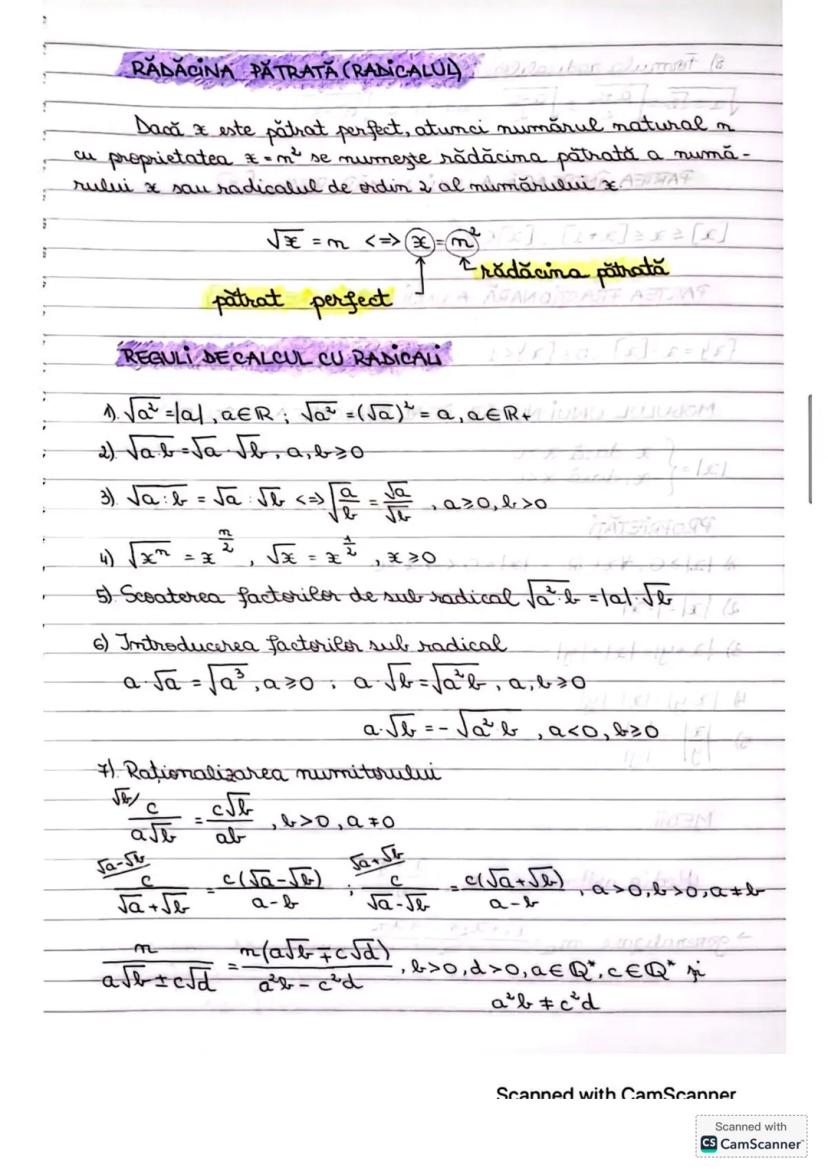 RĂDĂCINA PĂTRATĂ (RADICALUL)
Dacă x este pătrat perfect, atunci numărul natural n
cu proprietatea x = n² se numește rădăcina pătrată a numă-
rului x sau radicalul de ordin 2 al numărului x.
√x = n <=> x = n²
rădăcina pătrată
pătrat perfect
REGULI DE CALCUL CU RADICALI
1). √a² = |a|, a∈ℝ ; √a² = (√a)² = a, a∈ℝ+
2). √a·b = √a · √b, a, b ≥ 0
3). √a:b = √a : √b <=> √(a/b) = √a/√b, a ≥ 0, b > 0
4) √xⁿ = x^(n/2), √x = x^(1/2), x ≥ 0
5) Scoaterea factorilor de sub radical √a²·b = |a|·√b
6) Introducerea factorilor sub radical
a·√a = √a³, a ≥ 0 ; a·√b = √a²b, a, b ≥ 0
a·√b = - √a²·b, a < 0, b ≥ 0
7). Raționalizarea numitorului
√b/ c/(a√b) = c√b/(ab), b > 0, a ≠ 0
√a-√b/ c/(√a+√b) = c(√a-√b)/(a-b) ; √a+√b/ c/(√a-√b) = c(√a+√b)/(a-b), a > 0, b > 0, a ≠ b
n/(a√b ± c√d) = n(a√b ∓ c√d)/(a²b - c²d), b > 0, d > 0, a∈ℚ*, c∈ℚ* și
a²b ≠ c²d
Scanned with CamScanner
Scanned with
CS CamScanner